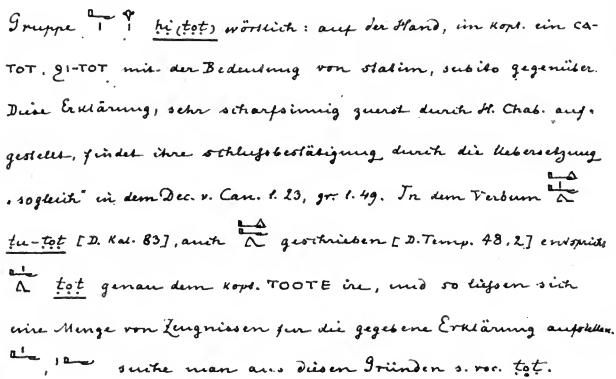 Gruppe 𓂝𓏤 𓁷 ḥi(tot) wörtlich: auf der Hand, im kopt. ein CA-
TOT. ϩI-TOT mit der Bedeutung von statim, subito gegenüber.
Diese Erklärung, sehr scharfsinnig zuerst durch H. Chab. auf-
gestellt, findet ihre schlußbestätigung durch die Uebersetzung
„sogleich" in dem Dec. v. Can. l. 23, gr. l. 49. In dem Verbum
tu-tot [D. Kal. 83], auch geschrieben [D. Temp. 48,2] entspricht
tot genau dem kopt. TOOTE ire, und so ließen sich
eine Menge von Zeugnissen für die gegebene Erklärung aufstellen.
suche man aus diesen Gründen s. voc. tot.